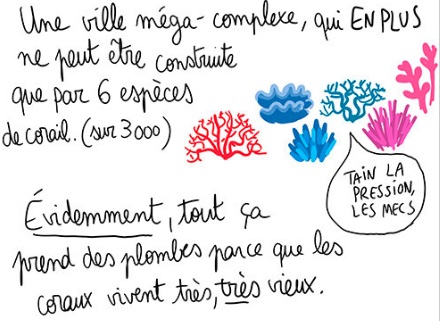 Une ville méga-complexe, qui EN PLUS
ne peut être construite
que par 6 espèces
de corail. (sur 3000)
TAIN LA
PRESSION,
LES MECS
Évidemment, tout ça
prend des plombes parce que les
coraux vivent très, très vieux.